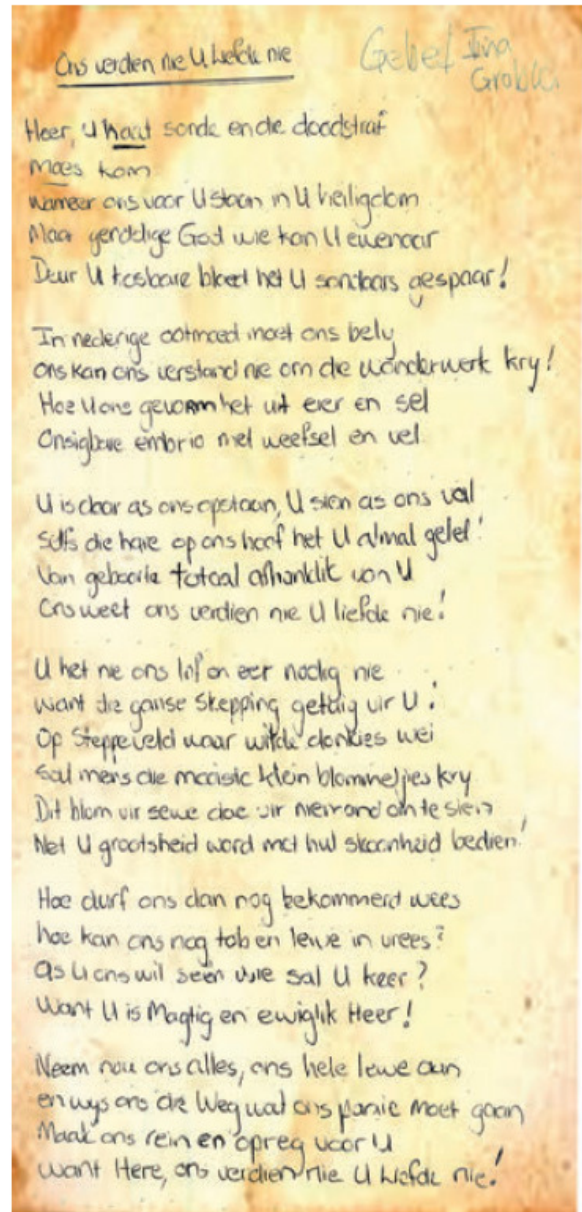 Ons verdien nie U liefde nie
Gebed Tina
Grobler
Heer, U haat sonde en die doodstraf
moes kom
wanneer ons voor U staan in U heiligdom
Maar genadige God wie kan U ewenaar
Deur U kosbare bloed het U sondaars gespaar!
In nederige ootmoed moet ons bely
ons kan ons verstand nie om die wonderwerk kry!
Hoe U ons gevorm het uit eier en sel
Onsigbare embrio met weefsel en vel
U is daar as ons opstaan, U sien as ons val
Selfs die hare op ons hoof het U almal getel!
Van geboorte totaal afhanklik van U
Ons weet ons verdien nie U liefde nie!
U het nie ons lof en eer nodig nie
want die ganse Skepping getuig vir U!
Op Steppeveld waar wilde donkies wei
Sal mens die mooiste klein blommetjies kry
Dit blom vir sewe dae vir niemand om te sien
Net U grootsheid word met hul skoonheid bedien!
Hoe durf ons dan nog bekommerd wees
hoe kan ons nog tob en lewe in vrees?
as U ons wil seën wie sal U keer?
Want U is Magtig en ewiglik Heer!
Neem nou ons alles, ons hele lewe aan
en wys ons die Weg wat ons moet gaan
Maak ons rein en opreg voor U
want Here, ons verdien nie U liefde nie!